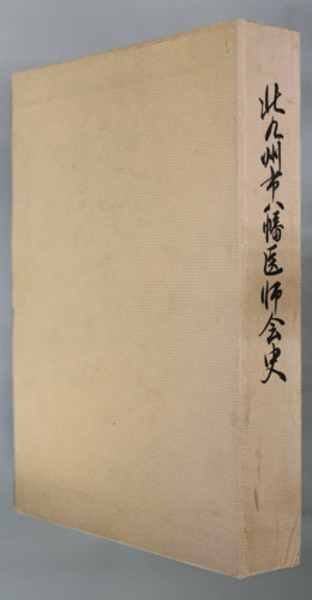 北九州市八幡医師会史